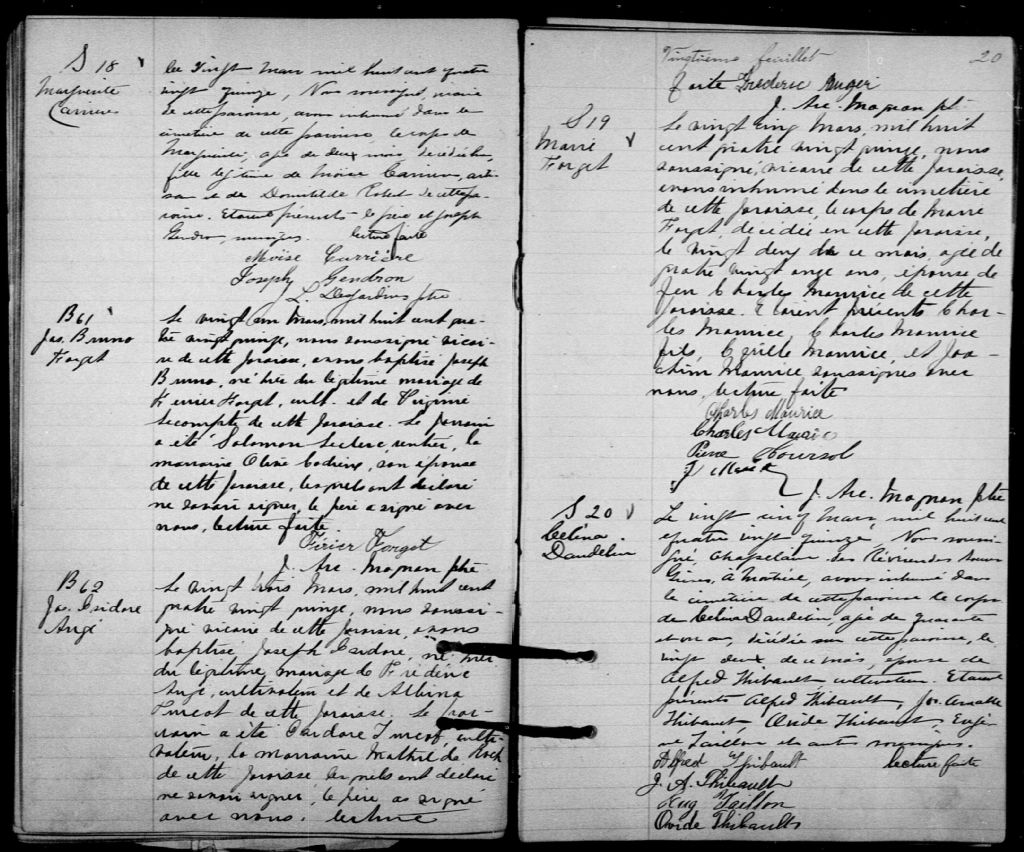 S 18
Marguerite
Carriere
Le vingt Mars mil huit cent quatre
vingt quinze, Nous soussigné, vicaire
de cette paroisse, avons inhumé dans le
cimetière de cette paroisse, le corps de
Marguerite, agée de deux mois décédée hier,
fille légitime de Moïse Carriere,
et de Domitilde de cette pa-
roisse. Etaient présents le père et Joseph
Gendron, soussignés. lecture faite
Moïse Carrière
Joseph Gendron
J. L. Desjardins ptre
B 61
Jos. Bruno
Forget
Le vingt un Mars, mil huit cent qua-
tre vingt quinze, nous soussigné vicai-
re de cette paroisse, avons baptisé Joseph
Bruno, né hier du légitime mariage de
Ferrier Forget, cult. et de Virginie
Lecompte de cette paroisse. Le parrain
a été Solomon Leclerc, rentier, la
marraine Olésie son épouse
de cette paroisse, lesquels ont déclaré
ne savoir signer, le père a signé avec
nous, lecture faite.
Férier Forget
J. Arc. Magnan ptre
B 62
Jos. Isidore
Angé
Le vingt trois Mars, mil huit cent
quatre vingt quinze, nous soussi-
gné vicaire de cette paroisse, avons
baptisé Joseph Isidore, né hier
du légitime mariage de Frédéric
Angé, cultivateur et de Albina
Turcot de cette paroisse. Le par-
rain a été Isidore Turcot, culti-
vateur, la marraine Mathilde Roch
de cette paroisse lesquels ont déclaré
ne savoir signer, le père a signé
avec nous. lecture
Vingtième feuillet
20
faite Frederic Auger
J. Arc. Magnan pt
S 19
Marie
Forget
Le vingt cinq Mars, mil huit
cent quatre vingt quinze, nous
soussigné, vicaire de cette paroisse,
avons inhumé dans le cimetière
de cette paroisse, le corps de Marie
Forget, décédée en cette paroisse,
le vingt deux de ce mois, agée de
quatre vingt onze ans, épouse de
feu Charles Maurice de cette
paroisse. Etaient présents Char-
les Maurice, Charles Maurice
fils, Cyrille Maurice, et Joa-
chim Maurice soussignés avec
nous, lecture faite
Charles Maurice
Charles Maurice
Pierre Coursol
J. Arc. Magnan ptre
S 20
Célina
Dandelin
Le vingt cinq Mars, mil huit cent
quatre vingt quinze. Nous soussi-
gné, Chapelain des Révérendes Soeurs
Grises, à Montréal, avons inhumé dans
le cimetière de cette paroisse le corps
de Célina Dandelin, agée de quarante
et un ans, décédée en cette paroisse, le
vingt deux de ce mois, épouse de
Alfred Thibault cultivateur. Etaient
présents Alfred Thibault, Jos. Amable
Thibault, Ovide Thibault, Eugè-
ne Taillon et autres soussignés.
Alfred Thibault lecture faite
J. A. Thibault
Eug Taillon
Ovide Thibault